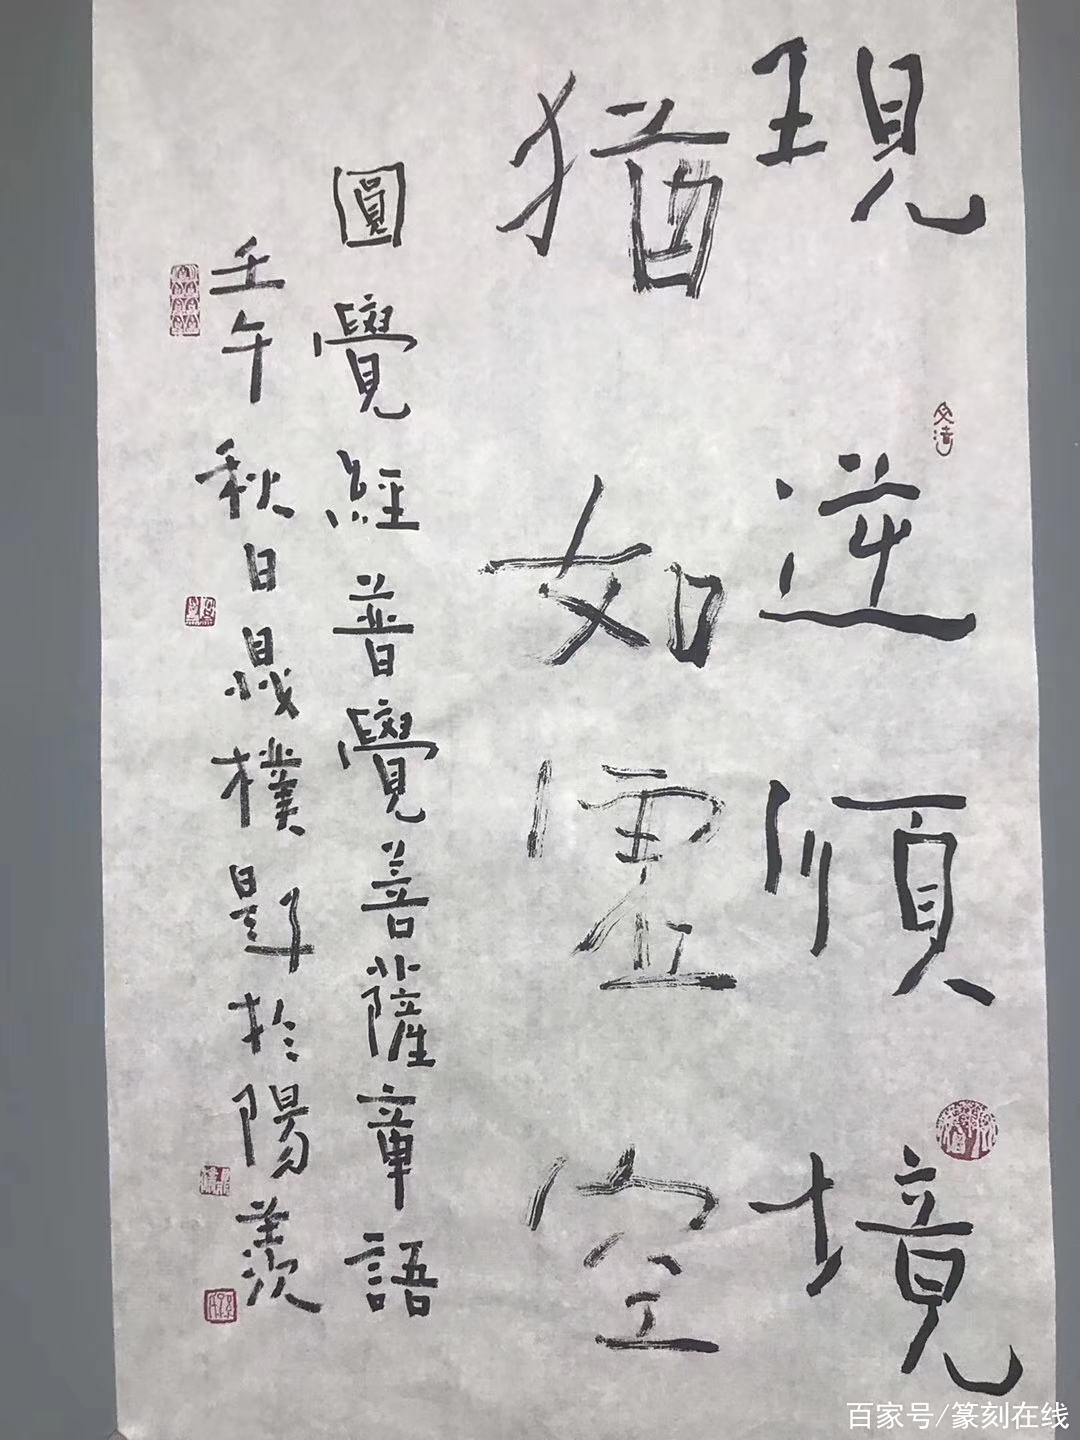 現逆順境
猶如虛空
圓覺經普覺菩薩章語
壬午秋日晟樸題於陽羨
百家号/篆刻在线